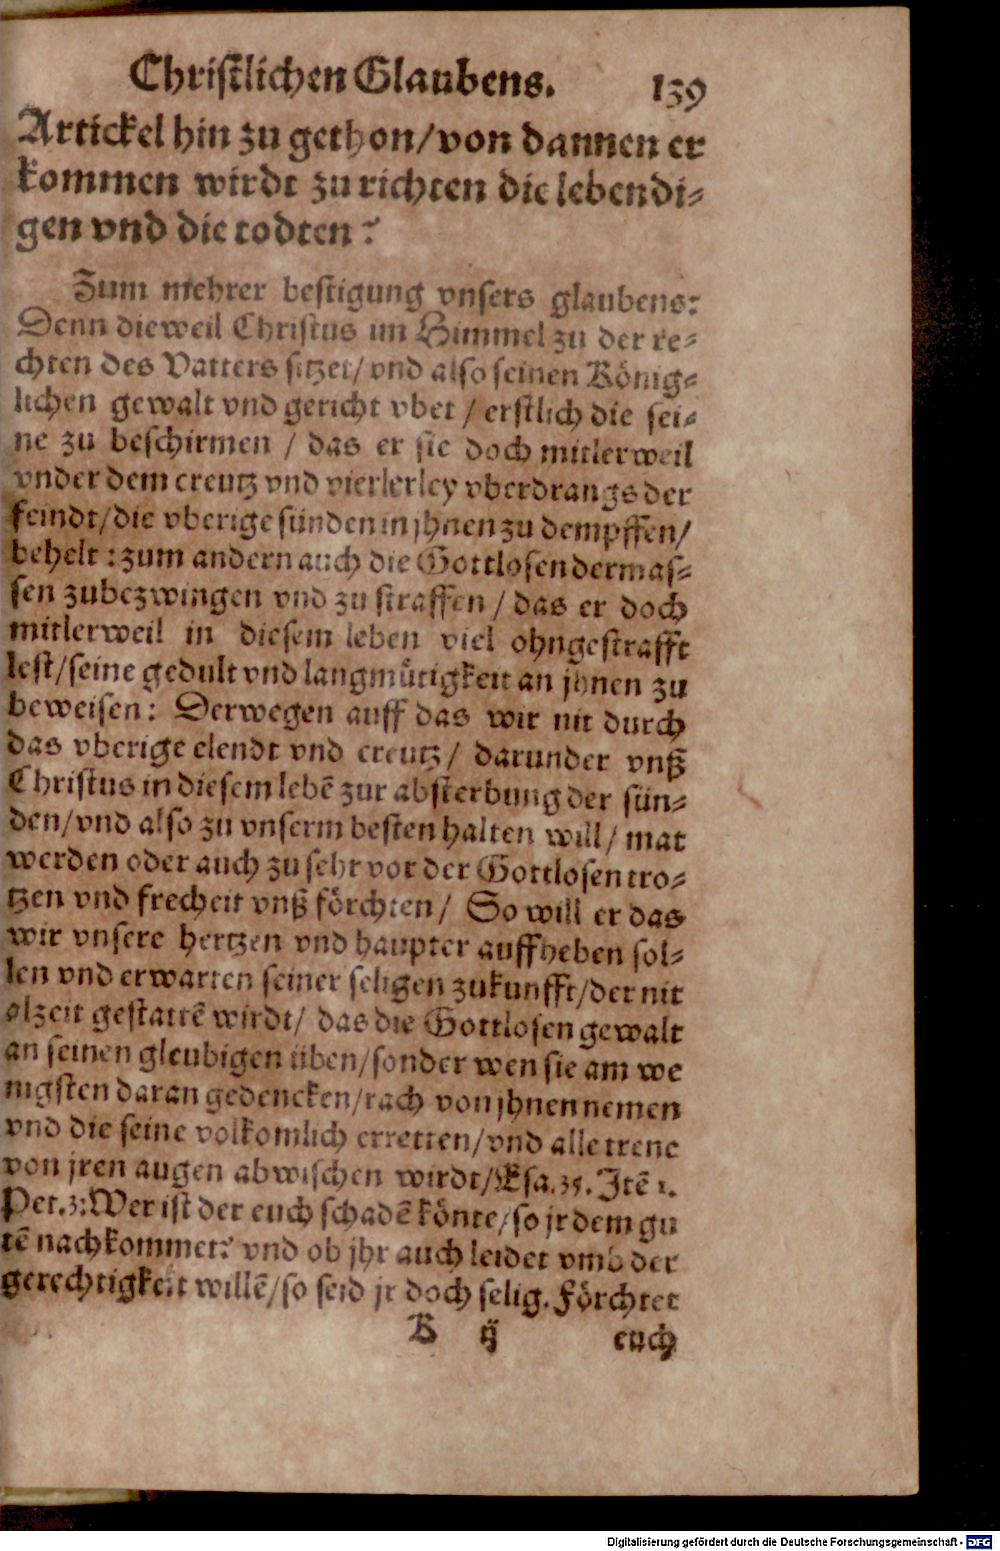 Christlichen Glaubens. 139
Artickel hin zu gethon/von dannen er
kommen wirdt zu richten die lebendi⸗
gen vnd die todten?
Zum mehrer bestigung vnsers glaubens:
Denn dieweil Christus im Himmel zu der re⸗
chten des Vatters sitzet/vnd also seinen König⸗
lichen gewalt vnd gericht vbet / erstlich die sei⸗
ne zu beschirmen / das er sie doch mitlerweil
vnder dem creutz vnd vierlerley vberdrangs der
feindt/die vberige sünden in jhnen zu dempffen/
behelt : zum andern auch die Gottlosen dermas⸗
sen zubezwingen vnd zu straffen / das er doch
mitlerweil in diesem leben viel ohngestrafft
lest/seine gedult vnd langmütigkeit an jhnen zu
beweisen: Derwegen auff das wir nit durch
das vberige elendt vnd creutz/ darunder vnß
Christus in diesem lebē zur absterbung der sün⸗
den/vnd also zu vnserm besten halten will/ mat
werden oder auch zu sehr vor der Gottlosen tro⸗
tzen vnd frecheit vnß förchten/ So will er das
wir vnsere hertzen vnd haupter auffheben sol⸗
len vnd erwarten seiner seligen zukunfft/der nit
alzeit gestattē wirdt/ das die Gottlosen gewalt
an seinen gleubigen üben/sonder wen sie am we
nigsten daran gedencken/rach von jhnen nemen
vnd die seine volkomlich erretten/vnd alle trene
von jren augen abwischen wirdt/Esa.35. Itē 1.
Pet.3:Wer ist der euch schadē könte/so jr dem gu
tē nachkommet? vnd ob jhr auch leidet vmb der
gerechtigkeit willē/so seid jr doch selig. Förchtet
K ij euch
Digitalisierung gefördert durch die Deutsche Forschungsgemeinschaft - DFG